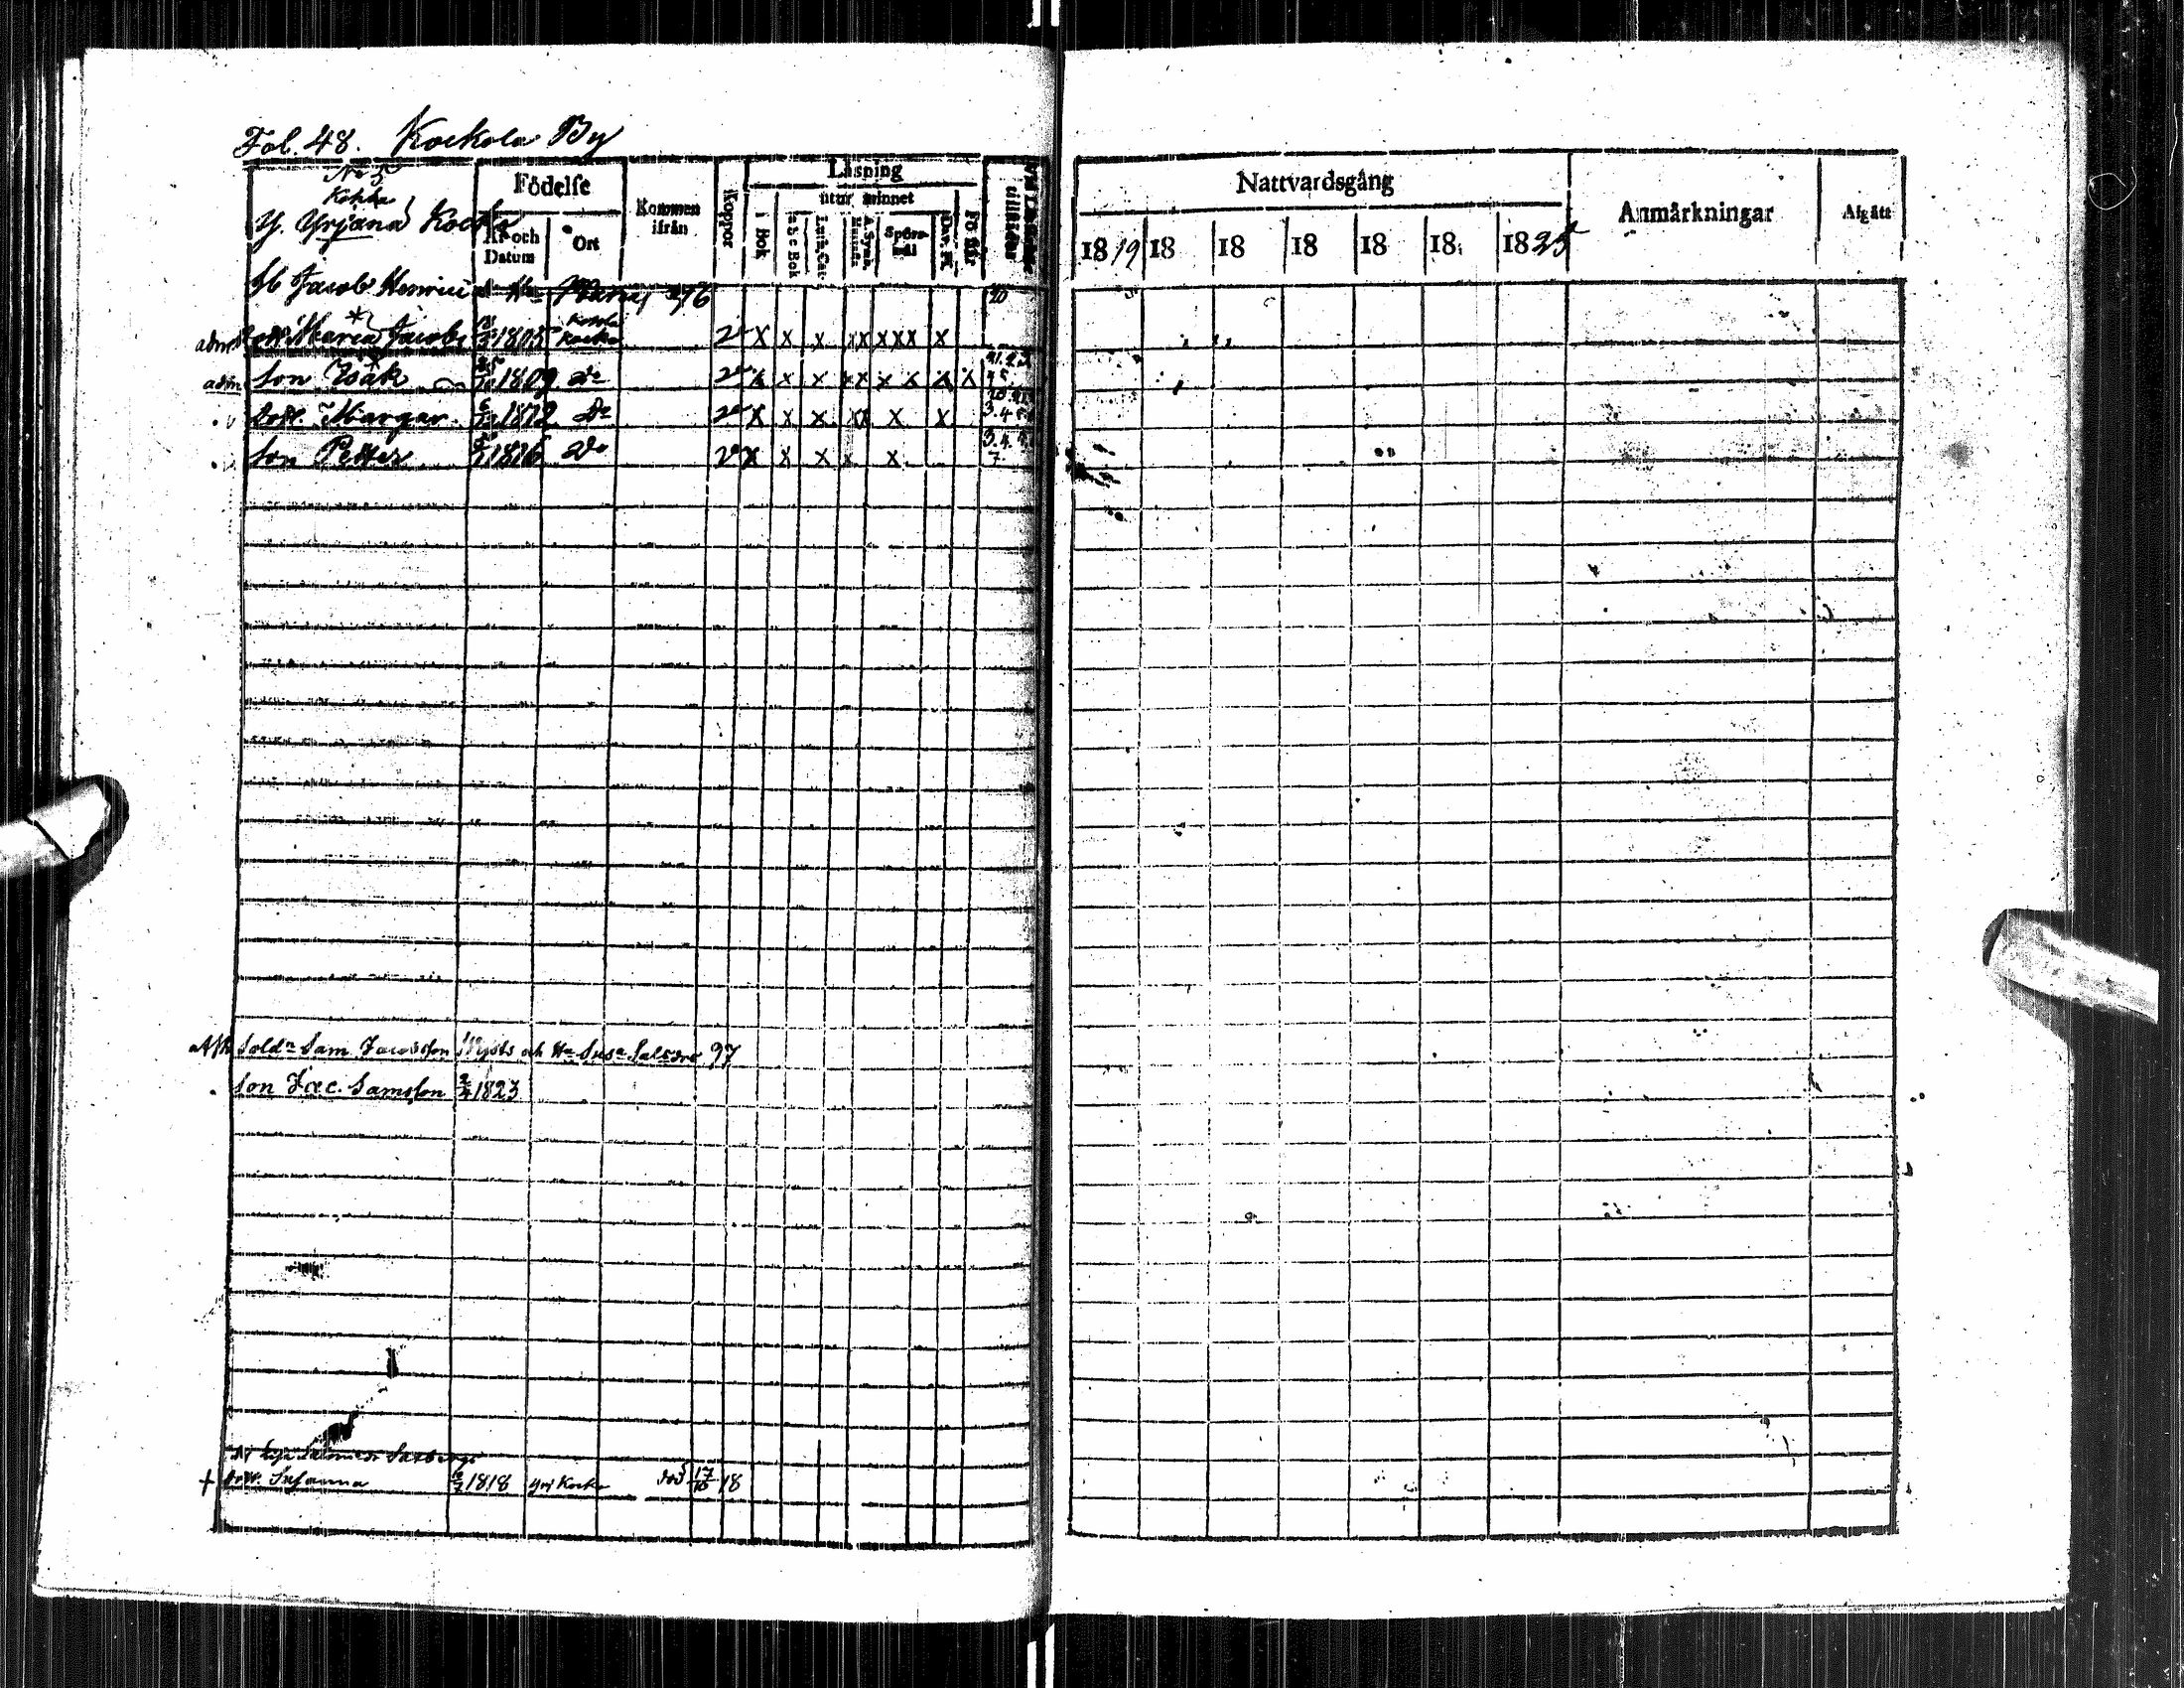 Fol. 48. Kockola By
No 5
Kokko
Y. Yrjänä Kocko
Födelse
År och Datum
Ort
Kommen ifrån
Koppor
Läsning
i Bok
utur minnet
a b c Bok
Luth. Cat.
Spörsmål
Dav. Ps.
Förstår
Nattvardsgång
1819 18 18 18 18 18 1825
Anmärkningar
Afgått
H Jacob Henrici 76
Kockola
adm dott. Maria Jacobs 1805 Kocko v x x x x x x x x x
20
adm son Isak 1809 do v x x x x x x x x x
21. 23
dott. Margar. 1812 do v x x x x x x x
3. 4. 5
son Petter 1816 do v x x x x x
3. 4.
7
Soldn Sam Jacobsson och Hu Susa 97
son Jac. Samsson 2/4 1823
+ dott. Susanna 1818 Yrj Kocko död 17/10 18